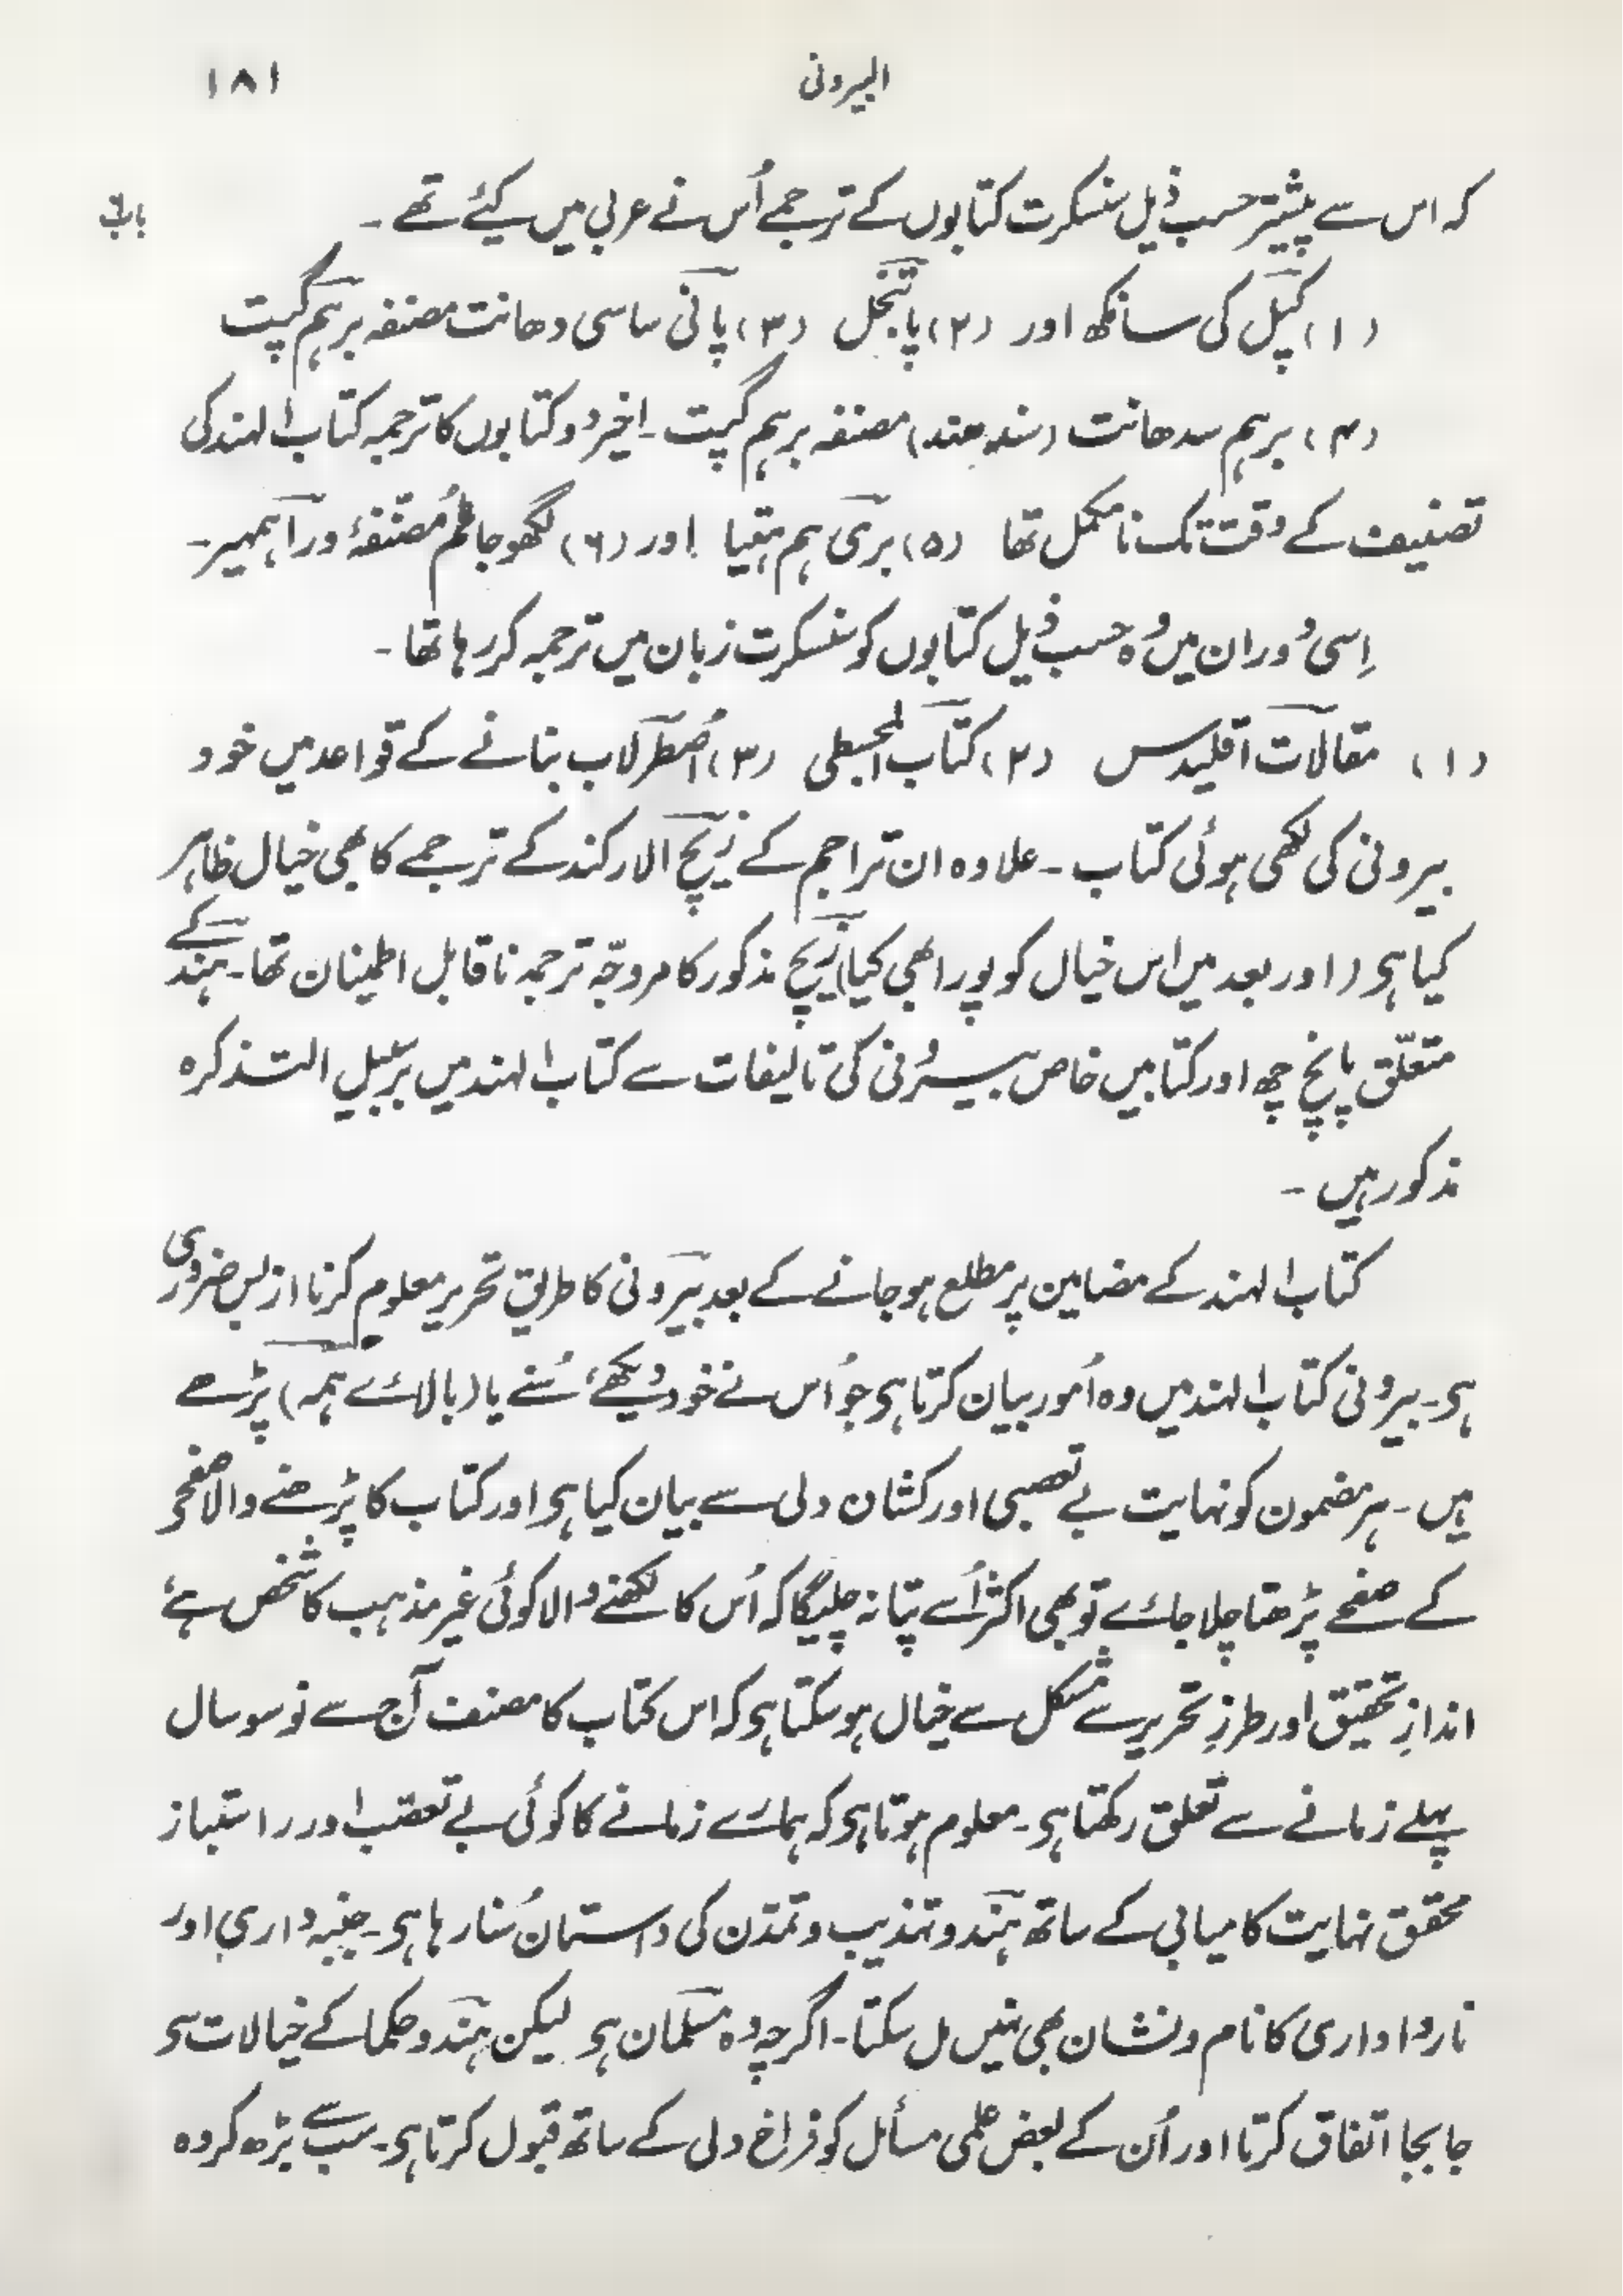 البیرونی
۱۸۱
کہ اس سے پیشتر حسب ذیل سنسکرت کتابوں کے ترجمے اُس نے عربی میں کیئے تھے ۔
باب
(۱) کپل کی سانکھ اور (۲) پاتنجل (۳) پانی ساسی دھانت مصنفہ برہم گپت
(۴) برہم سدھانت (سندھند) مصنفہ برہم گپت ۔ اخیر دو کتابوں کا ترجمہ کتاب الہند کی
تصنیف کے وقت تک نامکمل تھا (۵) بری ہم ہتیا اور (۶) لگھو جاتم مُصنّفۂ وراہمہیر ۔
اِسی دَوران میں وُہ حسب ذیل کتابوں کو سنسکرت زبان میں ترجمہ کر رہا تھا ۔
(۱) مقالات اقلیدس (۲) کتاب المجسطی (۳) اُصطرلاب بنانے کے قواعد میں خود
بیرونی کی لکھی ہوئی کتاب ۔ علاوہ ان تراجم کے زیچ الارکند کے ترجمے کا بھی خیال ظاہر
کیا ہی (اور بعد میں اس خیال کو پورا بھی کیا) زیچ مذکور کا مروجّہ ترجمہ ناقابل اطمینان تھا ۔ ہند کے
متعلّق پانچ چھ اور کتابیں خاص بیرُونی کی تالیفات سے کتاب الہند میں برسبیلِ التذکرہ
مذکور ہیں ۔
کتاب الہند کے مضامین پر مطلع ہو جانے کے بعد بیرونی کا طریق تحریر معلوم کرنا از بس ضروری
ہی ۔ بیرونی کتاب الہند میں وہ اُمور بیان کرتا ہی جو اُس نے خود دیکھے، سُنے یا (بالائے ہمہ) پڑھے
ہیں ۔ ہر مضمون کو نہایت بے تعصبی اور کشان دلی سے بیان کیا ہی اور کتاب کا پڑھنے والا صفحے
کے صفحے پڑھتا چلا جائے تو بھی اکثر اُسے پتا نہ چلیگا کہ اُس کا لکھنے والا کوئی غیر مذہب کا شخص ہے
اندازِ تحقیق اور طرزِ تحریر سے مشکل سے خیال ہو سکتا ہی کہ اس کتاب کا مصنف آج سے نو سو سال
پہلے زمانے سے تعلق رکھتا ہی ۔ معلوم ہوتا ہی کہ ہمارے زمانے کا کوئی بے تعصّب اور راستباز
محقق نہایت کامیابی کے ساتھ ہندو تہذیب و تمدّن کی داستان سُنا رہا ہی ۔ جنبہ داری اور
نارواداری کا نام و نشان بھی نہیں مل سکتا ۔ اگرچہ وہ مسلمان ہی لیکن ہندو حکما کے خیالات سے
جا بجا اتفاق کرتا اور اُن کے بعض علمی مسائل کو فراخ دلی کے ساتھ قبول کرتا ہی ۔ سب سے بڑھ کر وہ